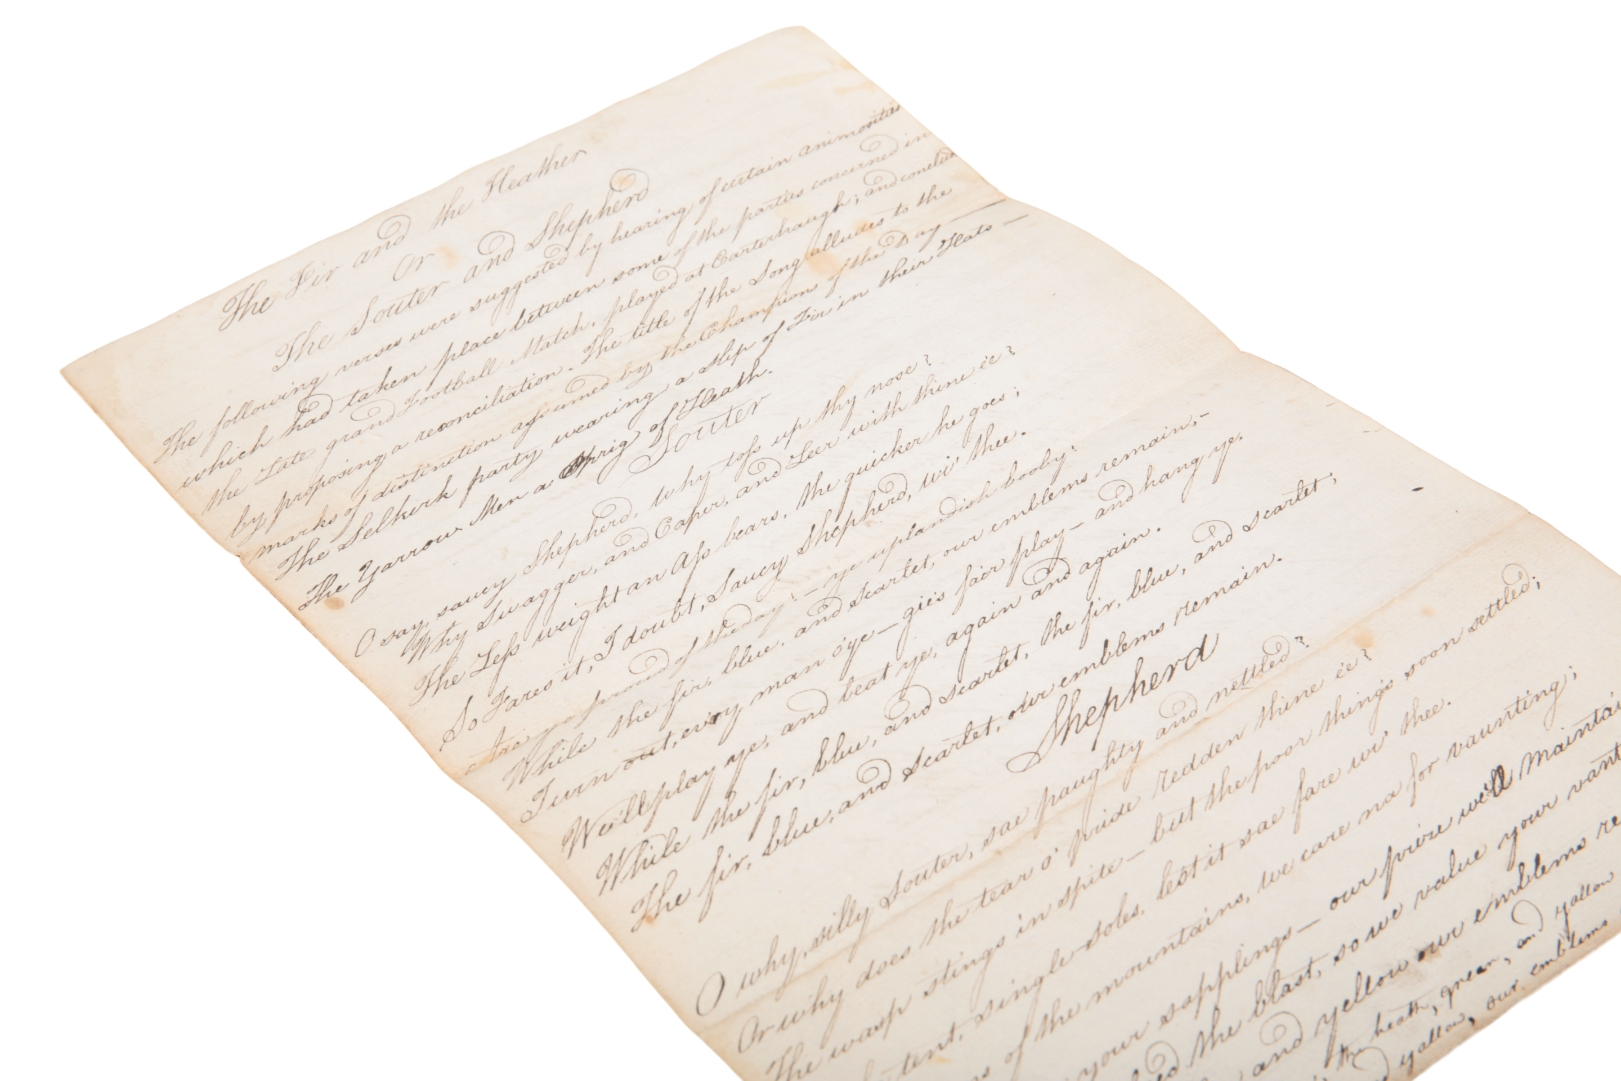 The Fir and the Heather
Or
The Souter and Shepherd
The following verses were suggested by hearing of certain animosities
which had taken place between some of the parties concerned in
the Late grand Football Match, played at Carterhaugh; and conclude
by proposing a reconciliation. The title of the Song alludes to the
marks of distinction assumed by the Champions of the Day
The Selkirk party wearing a slip of Fir in their Hats —
The Yarrow Men a Sprig of Heath.
Souter
O say, saucy Shepherd, why toss up thy nose?
Why Swagger, and Caper, and Leer with thine ee?
The Less weight an Ass bears, the quicker he goes;
So Fares it, I doubt, Saucy Shepherd, wi' thee.
Are ye proud of the day? — ye uplandish booby;
While the fir, blue, and scarlet, our emblems remain,—
Turn out, every man o'ye — gie's fair play — and hang ye.
We'll play ye, and beat ye, again and again.
While the fir, blue, and scarlet, the fir, blue, and scarlet;
The fir, blue, and scarlet, our emblems remain.
Shepherd
O why, silly Souter, sae paughty and nettled?
Or why does the tear o' pride redden thine ee?
The wasp stings in spite — but the poor thing's soon settled;
tent, single-soles, lest it sae fare wi' thee.
of the mountains, we care na for vaunting;
your sapplings — our prize we'll maintain
the blast, so we value your
and yellow our emblems
the heath, green, and yallow
yallow, our emblems